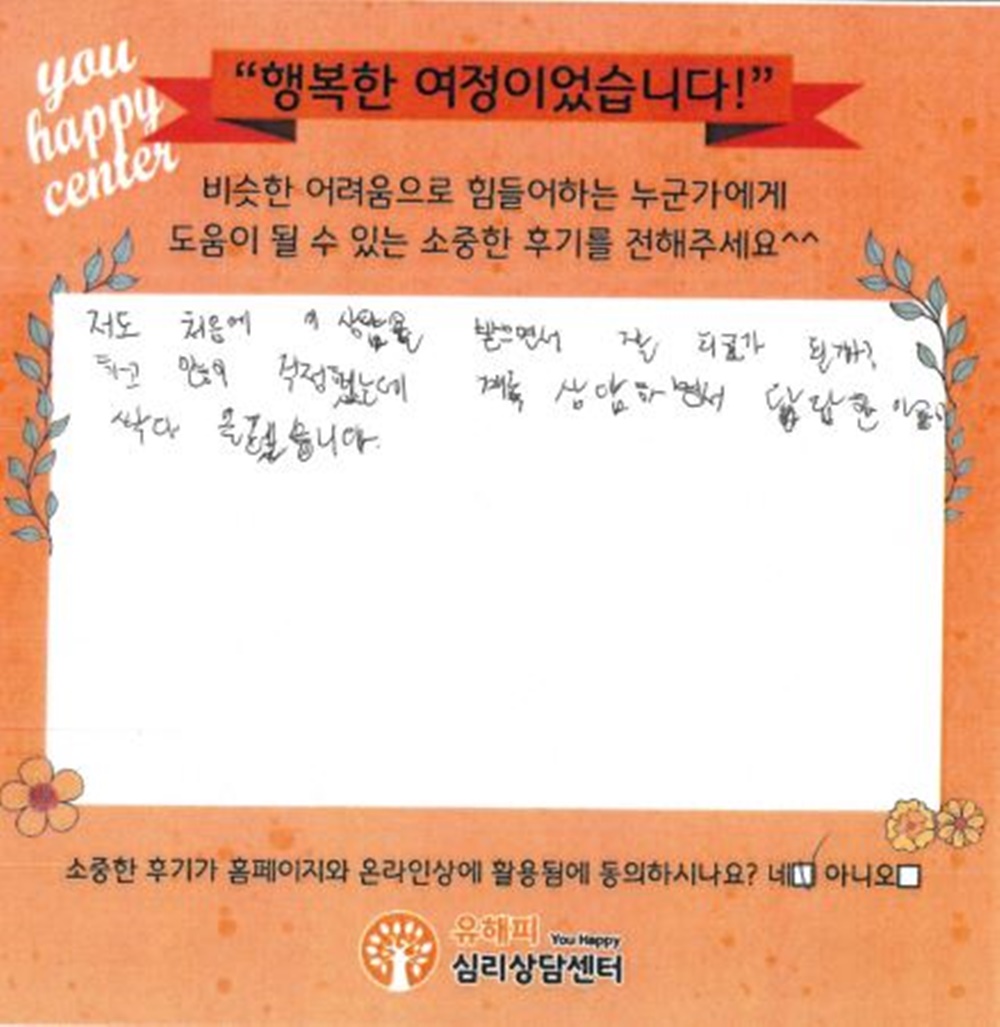 you
happy
center
“행복한 여정이었습니다!”
비슷한 어려움으로 힘들어하는 누군가에게
도움이 될 수 있는 소중한 후기를 전해주세요^^
저도 처음에 이 상담을 받으면서 잘 치료가 될까?
하고 많이 걱정했는데 계속 상담하면서 답답한
싹다 풀렸습니다.
소중한 후기가 홈페이지와 온라인상에 활용됨에 동의하시나요? 네 아니오
유해피 You Happy
심리상담센터